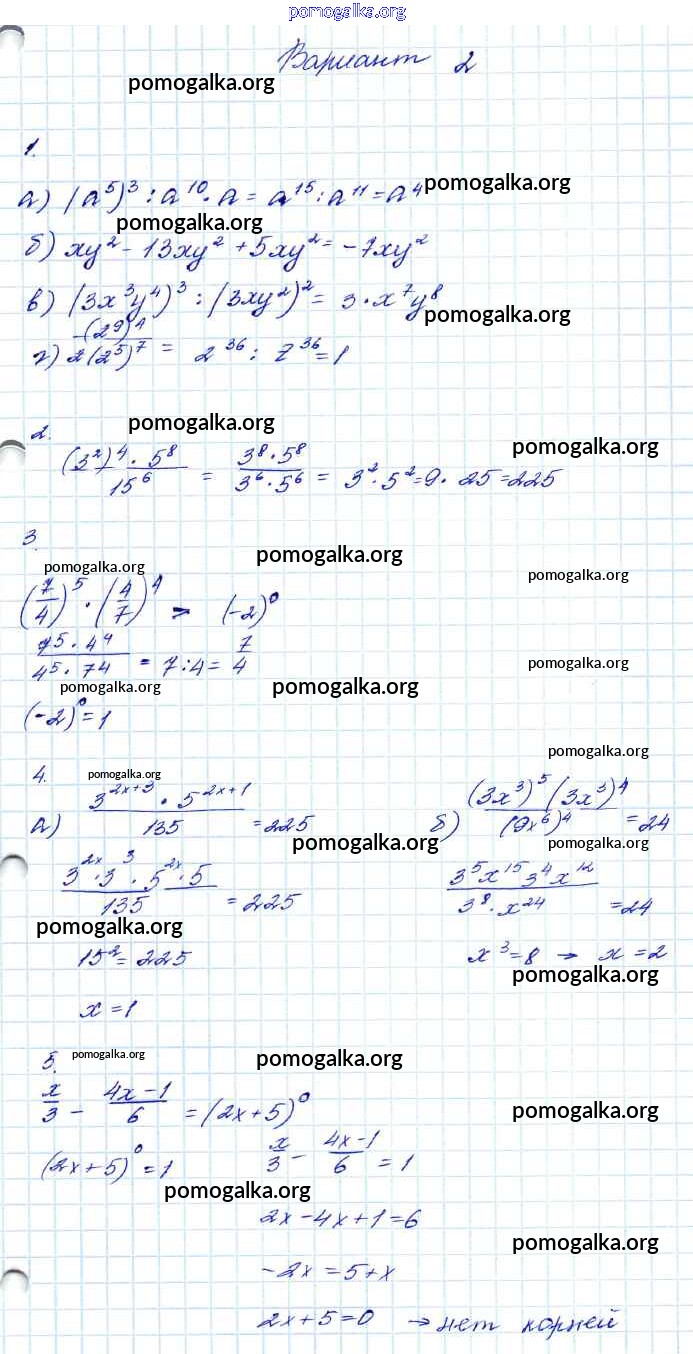 pomogalka.org
Вариант 2
pomogalka.org
1.
а) (a⁵)³ : a¹⁰ · a = a¹⁵ : a¹¹ = a⁴ pomogalka.org
pomogalka.org
б) xy² - 13xy² + 5xy² = -7xy²
в) (3x³y⁴)³ : (3xy²)² = 3 · x⁷y⁸
pomogalka.org
г) (2⁹)⁴ / 2(2⁵)⁷ = 2³⁶ : 2³⁶ = 1
pomogalka.org
2.
pomogalka.org
(3²)⁴ · 5⁸ / 15⁶ = 3⁸ · 5⁸ / 3⁶ · 5⁶ = 3² · 5² = 9 · 25 = 225
3.
pomogalka.org pomogalka.org pomogalka.org
(7/4)⁵ · (4/7)⁴ > (-2)⁰
7⁵ · 4⁴ / 4⁵ · 7⁴ = 7 : 4 = 7/4
pomogalka.org
pomogalka.org pomogalka.org
(-2)⁰ = 1
pomogalka.org
4. pomogalka.org
а) 3²ˣ⁺³ · 5²ˣ⁺¹ / 135 = 225
б) (3x³)⁵(3x³)⁴ / (9x⁶)⁴ = 24
pomogalka.org pomogalka.org
3²ˣ · 3³ · 5²ˣ · 5 / 135 = 225
3⁵x¹⁵3⁴x¹² / 3⁸ · x²⁴ = 24
pomogalka.org
15² = 225
x³ = 8 → x = 2
pomogalka.org
x = 1
5. pomogalka.org pomogalka.org
x/3 - 4x-1/6 = (2x+5)⁰
pomogalka.org
(2x+5)⁰ = 1
x/3 - 4x-1/6 = 1
pomogalka.org
2x-4x+1=6
pomogalka.org
-2x = 5+x
2x+5=0 → нет корней